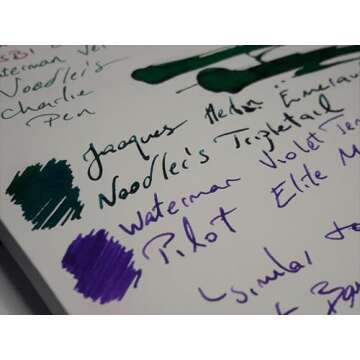 Waterman Ver
Noodler's
Charlie
Pen
Jacques Herbin
Noodler's Tripletail
Waterman Violet Ten
Pilot Elite M
similar to